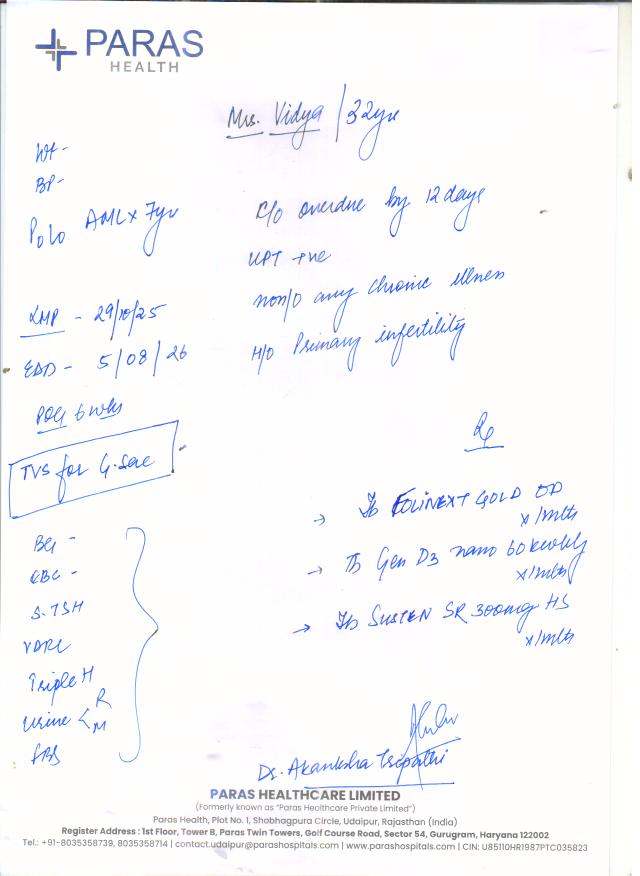 PARAS
HEALTH
Mrs. Vidya / 32yr
Wt -
BP -
P0L0 AML x 7yr
C/o overdue by 12 days
UPT +ve
non/o any chronic illness
LMP - 29/10/25
H/o Primary infertility
EDD - 5/08/26
POG 6 wks
Rx
TVS for G. Sac
→ Tb FOLINEXT GOLD OD
x 1 mth
→ Tb Gen D3 nano 60k wkly
x 1 mth
→ Tb SUSTEN SR 300mg HS
x 1 mth
BG -
CBC -
S. TSH
VDRL
Triple H
Urine < R
M
FBS
Dr. Akanksha Tripathi
PARAS HEALTHCARE LIMITED
(Formerly known as "Paras Healthcare Private Limited")
Paras Health, Plot No. 1, Shobhagpura Circle, Udaipur, Rajasthan (India)
Register Address : 1st Floor, Tower B, Paras Twin Towers, Golf Course Road, Sector 54, Gurugram, Haryana 122002
Tel.: +91-8035358739, 8035358714 | contact.udaipur@parashospitals.com | www.parashospitals.com | CIN: U85110HR1987PTC035823